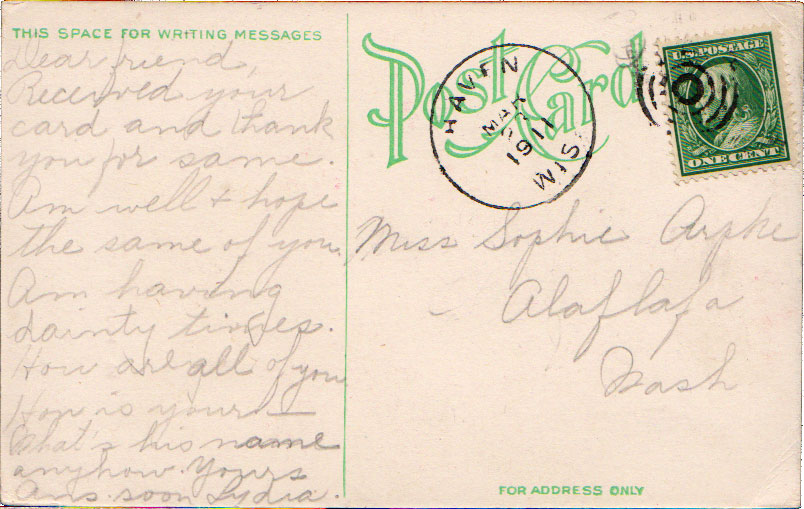 THIS SPACE FOR WRITING MESSAGES
Dear friend,
Received your
card and thank
you for same.
Am well & hope
the same of you.
Am having
dainty times.
How are all of you
How is your —
What's his name
anyhow. Yours
Ans. soon Lydia.
Post Card
HAVEN
MAR
1911
WIS.
U.S. POSTAGE
ONE CENT
Miss Sophie Arpke
Alaflafa
Wash
FOR ADDRESS ONLY